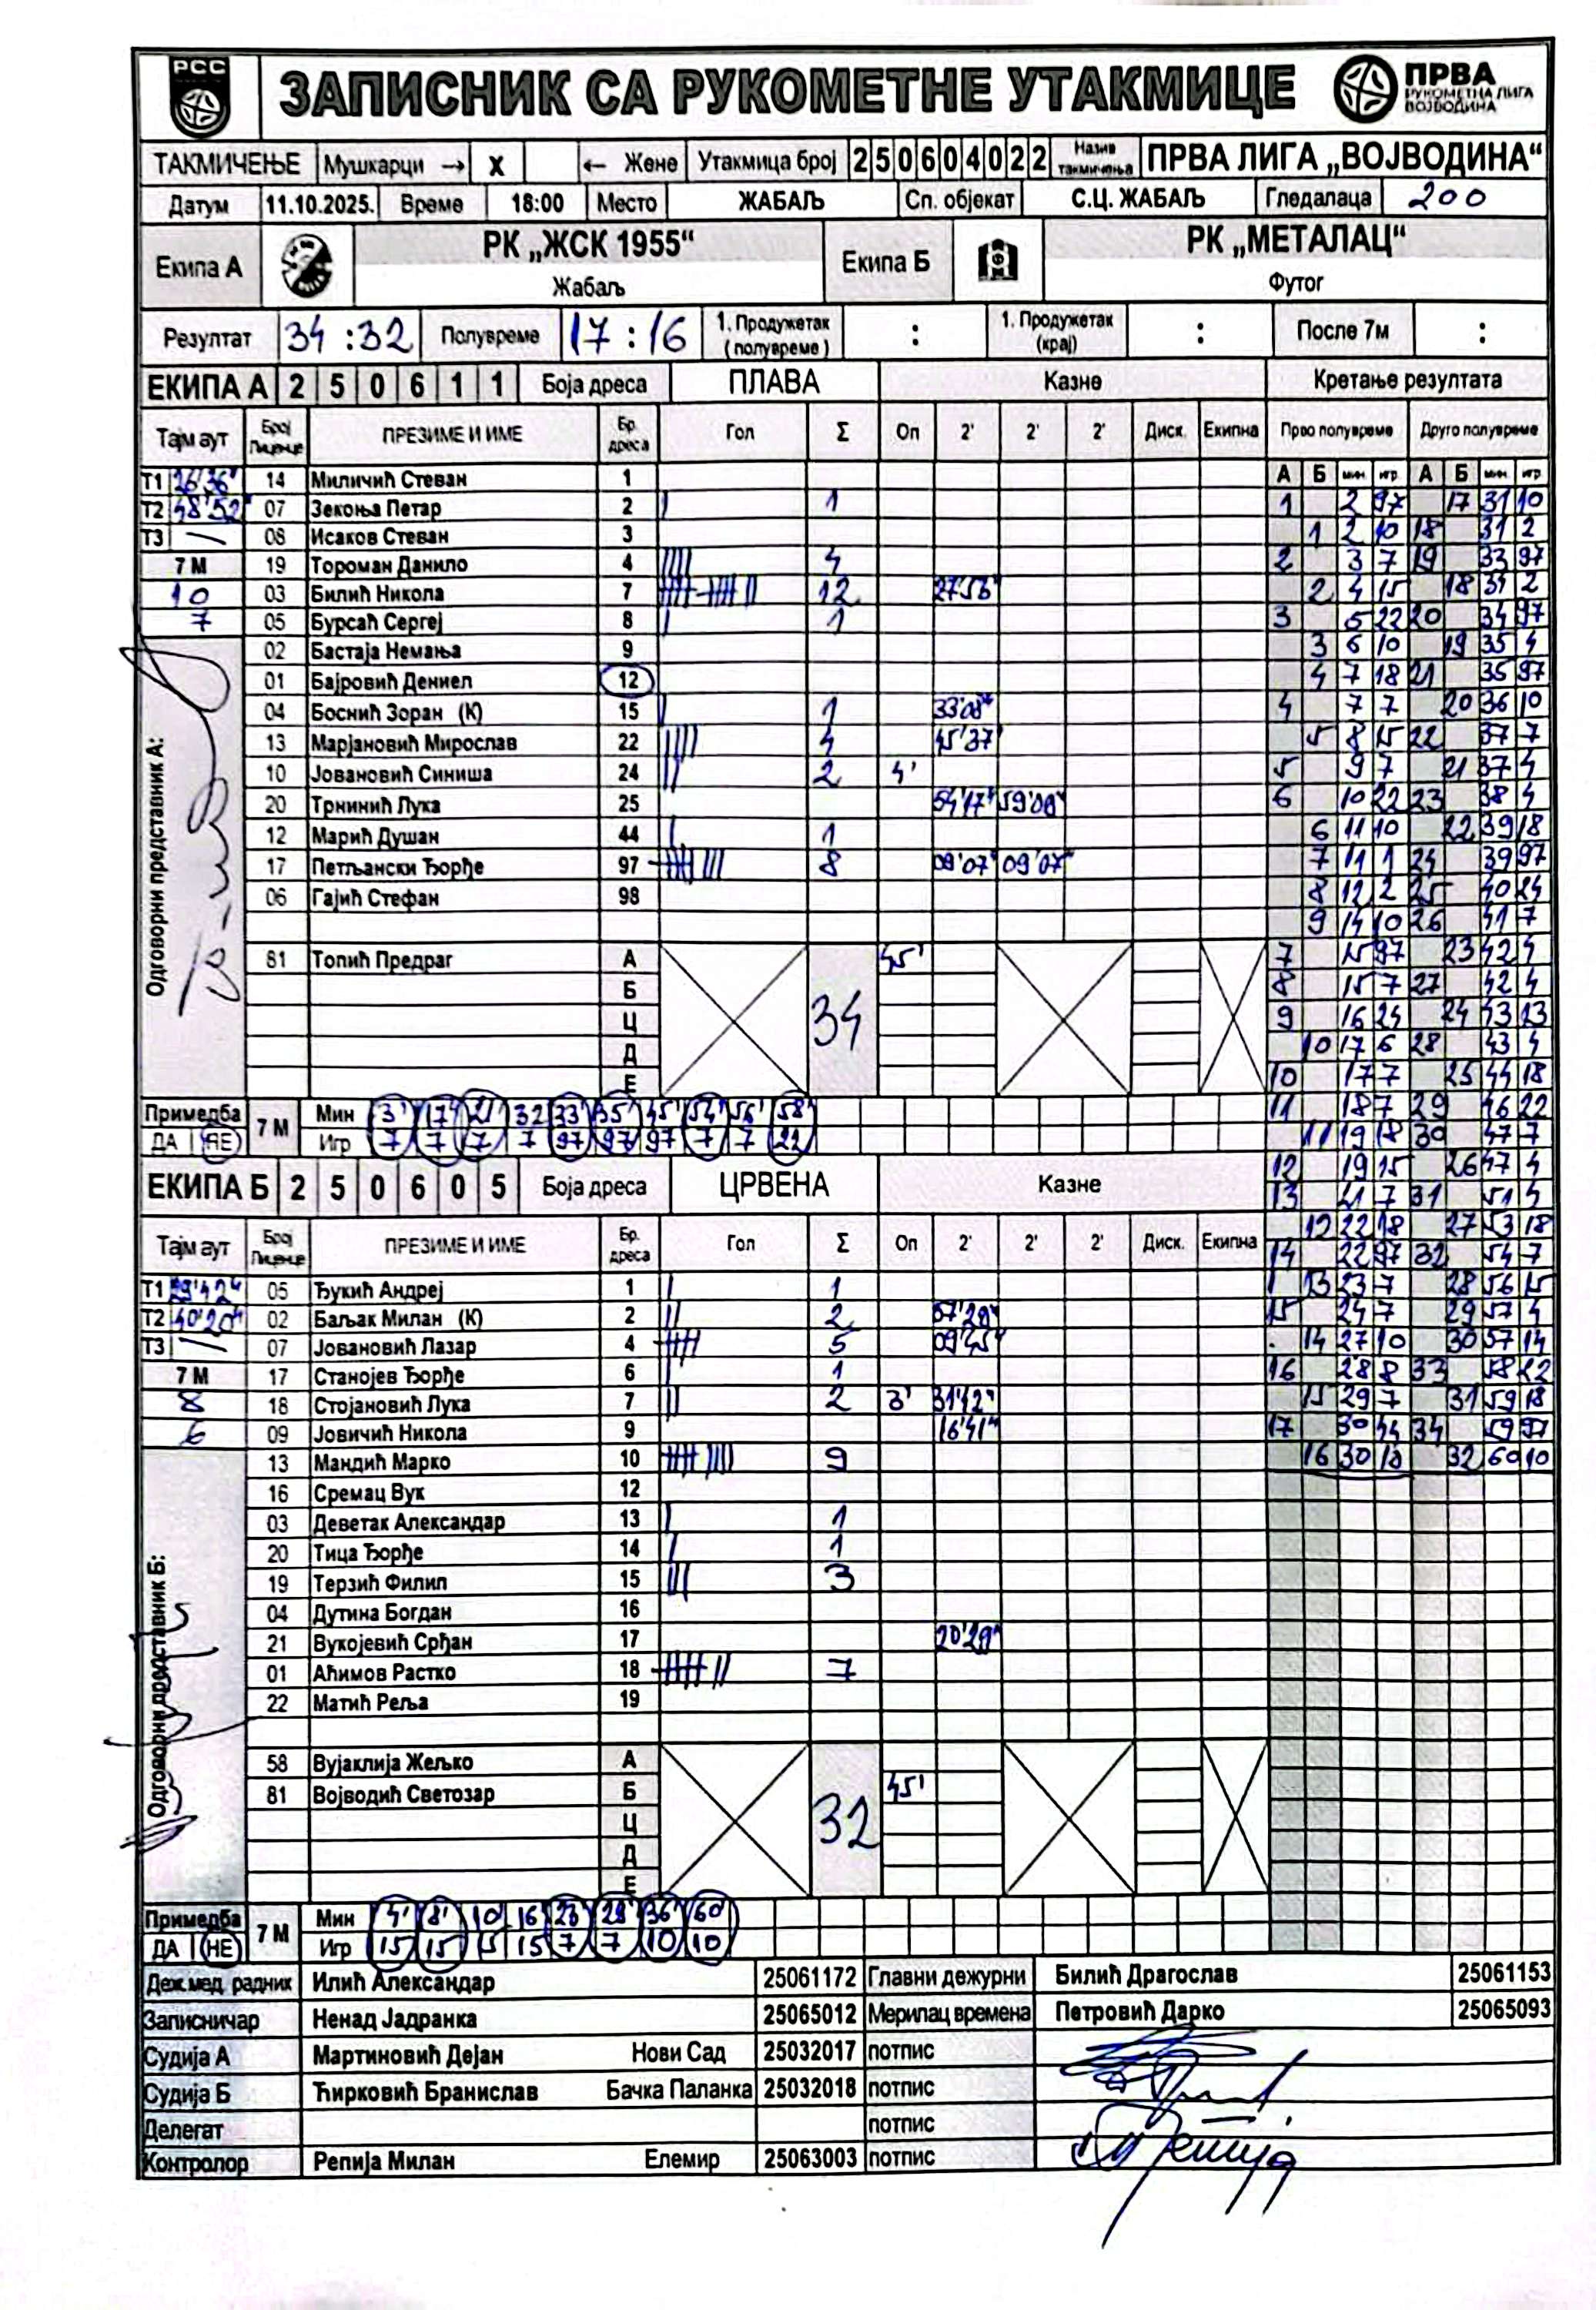 РСС
ЗАПИСНИК СА РУКОМЕТНЕ УТАКМИЦЕ
ПРВА
РУКОМЕТНА ЛИГА
ВОЈВОДИНА
ТАКМИЧЕЊЕ Мушкарци → X ← Жене Утакмица број 250604022 Назив такмичења ПРВА ЛИГА „ВОЈВОДИНА“
Датум 11.10.2025. Време 18:00 Место ЖАБАЉ Сп. објекат С.Ц. ЖАБАЉ Гледалаца 200
Екипа А РК „ЖСК 1955“ Жабаљ Екипа Б РК „МЕТАЛАЦ“ Футог
Резултат 34:32 Полувреме 17:16 1. Продужетак (полувреме) : 1. Продужетак (крај) : После 7м :
ЕКИПА А 2 5 0 6 1 1 Боја дреса ПЛАВА Казне Кретање резултата
Тајм аут Број Лиценце ПРЕЗИМЕ И ИМЕ Бр. дреса Гол Σ Оп 2' 2' 2' Диск. Екипна Прво полувреме Друго полувреме
А Б мин игр А Б мин игр
Т1 26'36" 14 Миличић Стеван 1
Т2 48'52" 07 Зекоња Петар 2 | 1
Т3 — 08 Исаков Стеван 3
7 М 19 Тороман Данило 4 |||| 4
10 03 Билић Никола 7 12 27'53"
7 05 Бурсаћ Сергеј 8 | 1
02 Бастаја Немања 9
01 Бајровић Дениел 12
04 Боснић Зоран (К) 15 | 1 33'08"
13 Марјановић Мирослав 22 |||| 4 45'37"
10 Јовановић Синиша 24 || 2 4'
20 Трнинић Лука 25 54'17" 59'00"
12 Марић Душан 44 | 1
17 Петљански Ђорђе 97 8 09'07" 09'07"
06 Гајић Стефан 98
81 Топић Предраг А 45'
Б
Ц
Д
Е
34
Одговорни представник А:
1 2 97 17 31 10
1 2 10 18 31 2
2 3 7 19 33 97
2 4 15 18 34 2
3 5 22 20 34 97
3 6 10 19 35 4
4 7 18 21 35 97
4 7 7 20 36 10
5 8 15 22 37 7
5 9 7 21 37 4
6 10 22 23 38 4
6 11 10 22 39 18
7 11 1 24 39 97
8 12 2 25 40 24
9 14 10 26 41 7
7 15 97 23 42 4
8 15 7 27 42 4
9 16 24 24 43 13
10 17 6 28 43 4
10 17 7 25 44 18
11 18 7 29 46 22
11 19 18 30 47 7
12 19 15 26 47 4
13 21 7 31 51 4
12 22 18 27 53 18
14 22 97 32 54 7
13 23 7 28 56 15
15 24 7 29 57 4
14 27 10 30 57 14
16 28 8 33 58 22
15 29 7 31 59 18
17 30 44 34 59 97
16 30 10 32 60 10
Примедба 7 М Мин 3' 17' 21' 32 33' 35' 45' 54' 56' 58'
ДА НЕ Игр 7 7 7 7 97 97 97 7 7 22
ЕКИПА Б 2 5 0 6 0 5 Боја дреса ЦРВЕНА Казне
Тајм аут Број Лиценце ПРЕЗИМЕ И ИМЕ Бр. дреса Гол Σ Оп 2' 2' 2' Диск. Екипна
Т1 05 Ђукић Андреј 1 | 1
Т2 40'20" 02 Баљак Милан (К) 2 || 2 57'28"
Т3 — 07 Јовановић Лазар 4 5 09'45"
7 М 17 Станојев Ђорђе 6 | 1
8 18 Стојановић Лука 7 || 2 3' 31'12"
6 09 Јовичић Никола 9 16'41"
13 Мандић Марко 10 9
16 Сремац Вук 12
03 Деветак Александар 13 | 1
20 Тица Ђорђе 14 | 1
19 Терзић Филип 15 ||| 3
04 Дутина Богдан 16
21 Вукојевић Срђан 17 20'29"
01 Аћимов Растко 18 7
22 Матић Реља 19
58 Вујаклија Жељко А
81 Војводић Светозар Б 45'
Ц
Д
Е
32
Одговорни представник Б:
Примедба 7 М Мин 4' 8' 10 16 23 28' 36' 60'
ДА НЕ Игр 15 15 15 15 7 7 10 10
Деж.мед. радник Илић Александар 25061172 Главни дежурни Билић Драгослав 25061153
Записничар Ненад Јадранка 25065012 Мерилац времена Петровић Дарко 25065093
Судија А Мартиновић Дејан Нови Сад 25032017 потпис
Судија Б Ћирковић Бранислав Бачка Паланка 25032018 потпис
Делегат потпис
Контролор Репија Милан Елемир 25063003 потпис